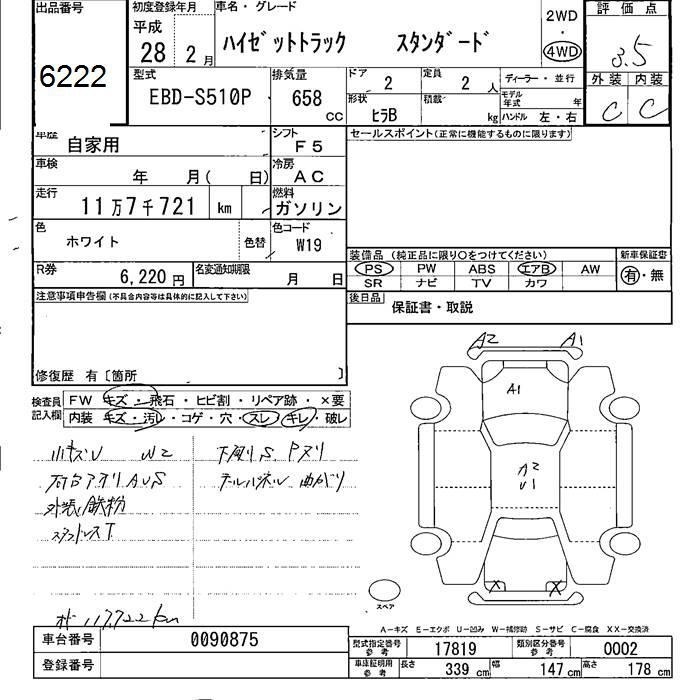 出品番号
6222
初度登録年月
平成
28 2 月
車名・グレード
ハイゼットトラック スタンダード
2WD
・
4WD
評 価 点
3.5
外装 内装
C C
型式
EBD-S510P
排気量
658
CC
ドア
2
定員
2
人
ディーラー・並行
形状
ヒラB
積載
kg
モデル
年式
年
ハンドル 左・右
車歴
自家用
シフト
F5
車検
年 月( 日)
冷房
AC
走行
11万7千721 km
燃料
ガソリン
色
ホワイト
色替
色コード
W19
R券
6,220 円
名変通知期限
月 日
セールスポイント(正常に機能するものに限ります)
装備品(純正品に限り○をつけてください)
PS PW ABS エアB AW
SR ナビ TV カワ
新車保証書
有・無
後日品
保証書・取説
注意事項申告欄(不具合内容等は具体的に記入して下さい)
修復歴 有〔箇所 〕
検査員
記入欄
FW キズ・飛石・ヒビ割・リペア跡・×要
内装 キズ・汚レ・コゲ・穴・スレ・キレ・破レ
小キズU W2
下廻りS Pヌリ
外装鉄粉
スタッドレスT
A2 A1
A1
A2
U1
X X
スペア
A-キズ E-エクボ U-凹み W-補修跡 S-サビ C-腐食 XX-交換済
車台番号
0090875
登録番号
型式指定番号
参考
17819
類別区分番号
参考
0002
車庫証明用
参考
長さ 339 cm 幅 147 cm 高さ 178 cm